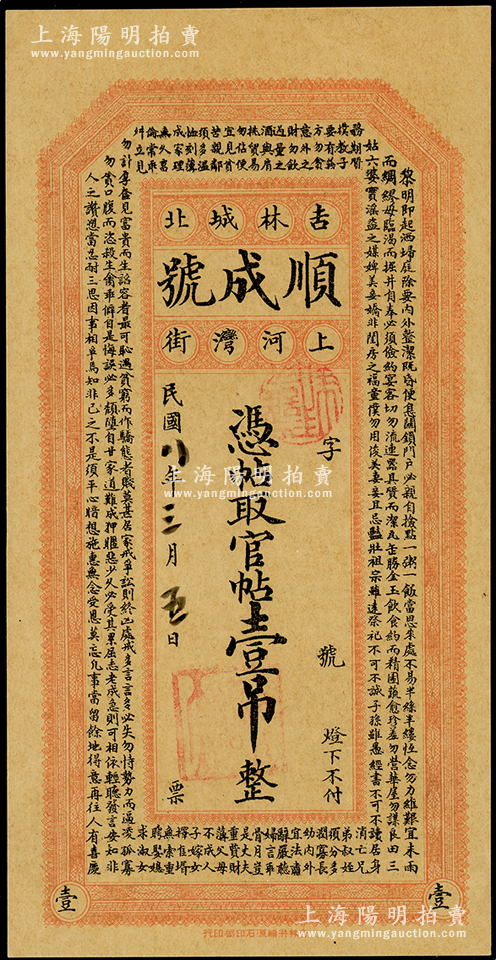 上海陽明拍賣
www.yangmingauction.com
上海陽明拍賣
www.yangmingauction.com
吉林城北
順成號
上河灣街
字
號
燈下不付
憑帖取官帖壹吊整
民國八年三月五日
票
黎明即起洒埽庭除要內外整潔既昏便息關鎖門戶必親自撿點一粥一飯當思來處不易半絲半縷恆念物力維艱宜未雨
而綢繆毋臨渴而掘井自奉必須儉約宴客切勿流連器具質而潔瓦缶勝金玉飲食約而精園蔬愈珍羞勿營華屋勿謀良田三
姑
六婆實淫盜之媒婢美妾嬌非閨房之福童僕勿用俊美妻妾且忌豔壯祖宗雖遠祭祀不可不誠子孫雖愚經書不可不讀居身
務期質
樸教子
要有義
方勿貪
意外之
財勿飲
過量之
酒與肩
挑貿易
勿佔便
宜見貧
苦親鄰
須多溫
恤刻薄
成家理
無久享
倫常乖
舛立見
消亡兄
弟叔姪
須分多
潤寡長
幼內外
宜法肅
辭嚴聽
婦言乖
骨肉豈
是丈夫
重貲財
薄父母
不成人
子嫁女
擇佳壻
無索重
聘娶媳
求淑女
勿計厚奩見富貴而生諂容者最可恥遇貧窮而作驕態者賤莫甚居家戒爭訟訟則終凶處世戒多言言多必失勿恃勢力而逼凌孤寡
勿貪口腹而恣殺生禽乖僻自是悔誤必多頹隳自甘家道難成狎暱惡少久必受其累屈志老成急則可相依輕聽發言安知非
人之譖愬當忍耐三思因事相爭焉知非己之不是須平心暗想施惠無念受恩莫忘凡事當留餘地得意再往人有喜慶
壹
壹
上海陽明拍賣
www.yangmingauction.com